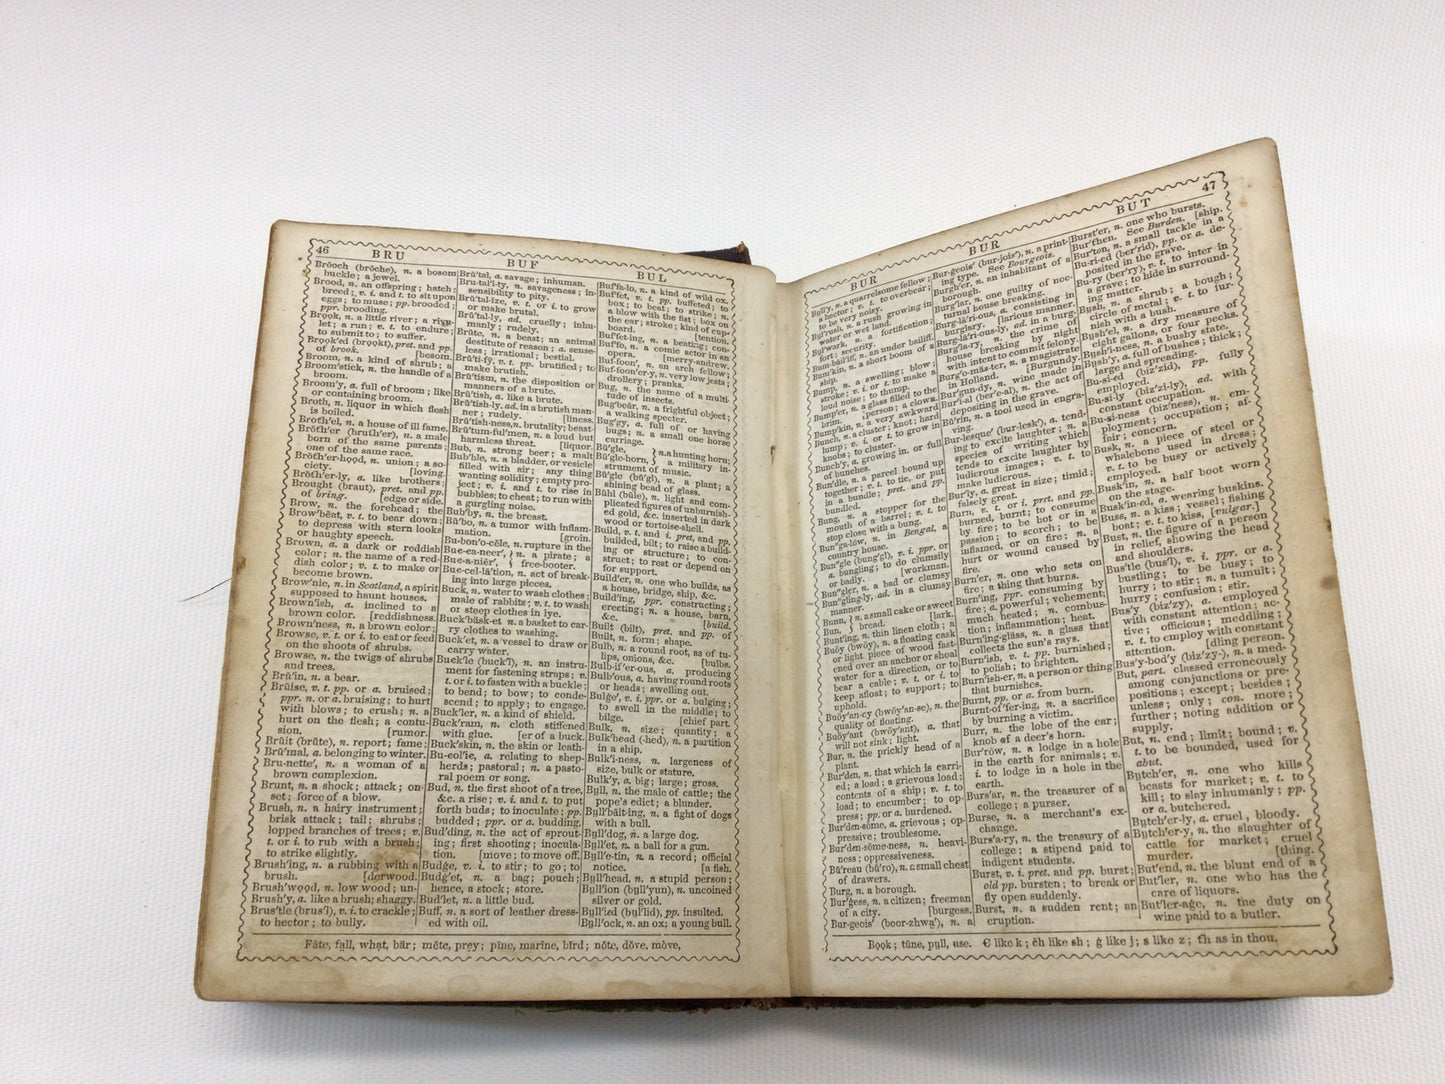 46
BRU
BUF
BUL
Brōoch (brōche), n. a bosom
buckle; a jewel.
Brood, n. an offspring; hatch;
breed; v. i. and t. to sit upon
eggs; to muse; pp. brooded;
ppr. brooding.
Brook, n. a little river; a rivu-
let; a run; v. t. to endure;
to submit to; to suffer.
Brook'ed (brookt), pret. and pp.
of brook. [besom.
Broom, n. a kind of shrub; a
Broom'stick, n. the handle of a
broom.
Broom'y, a. full of broom; like
or containing broom.
Broth, n. liquor in which flesh
is boiled.
Broth'el, n. a house of ill fame.
Broth'er (bruth'er), n. a male
born of the same parents;
one of the same race.
Broth'er-hood, n. union; a so-
ciety. [loving.
Broth'er-ly, a. like brothers;
Brought (braut), pret. and pp.
of bring. [edge or side.
Brow, n. the forehead; the
Brow'bēat, v. t. to bear down;
to depress with stern looks
or haughty speech.
Brown, a. a dark or reddish
color; n. the name of a red-
dish color; v. t. to make or
become brown.
Brow'nie, n. in Scotland, a spirit
supposed to haunt houses.
Brown'ish, a. inclined to a
brown color. [reddishness.
Brown'ness, n. a brown color;
Browse, v. t. or i. to eat or feed
on the shoots of shrubs.
Browse, n. the twigs of shrubs
and trees.
Brū'in, n. a bear.
Brūise, v. t. pp. or a. bruised;
ppr. n. or a. bruising; to hurt
with blows; to crush; n. a
hurt on the flesh; a contu-
sion. [rumor.
Brūit (brūte), n. report; fame;
Brū'mal, a. belonging to winter.
Bru-nette', n. a woman of a
brown complexion.
Brunt, n. a shock; attack; on-
set; force of a blow.
Brush, n. a hairy instrument;
brisk attack; tail; shrubs;
lopped branches of trees; v.
t. or i. to rub with a brush;
to strike slightly.
Brush'ing, n. a rubbing with a
brush. [derwood.
Brush'wood, n. low wood; un-
Brush'y, a. like a brush; shaggy.
Brus'tle (brus'l), v. i. to crackle;
to hector; to bully.
Brū'tal, a. savage; inhuman.
Bru-tal'i-ty, n. savageness; in-
sensibility to pity.
Brū'tal-ize, v. t. or i. to grow
or make brutal.
Brū'tal-ly, ad. cruelly; inhu-
manly; rudely.
Brūte, n. a beast; an animal
destitute of reason; a. sense-
less; irrational; bestial.
Brū'ti-fȳ, v. t. pp. brutified; to
make brutish.
Brū'tism, n. the disposition or
manners of a brute.
Brū'tish, a. like a brute.
Brū'tish-ly, ad. in a brutish man-
ner; rudely. [liness.
Brū'tish-ness, n. brutality; beast-
Brū'tum-ful'men, n. a loud but
harmless threat. [liquor.
Bub, n. strong beer; a malt
Bub'ble, n. a bladder, or vesicle
filled with air; any thing
wanting solidity; empty pro-
ject; v. i. and t. to rise in
bubbles; to cheat; to run with
a gurgling noise.
Bub'by, n. the breast.
Bū'bo, n. a tumor with inflam-
mation. [groin.
Bu-bon'o-cēle, n. rupture in the
Bue-ca-neer', } n. a pirate; a
Bue-a-niēr', } free-booter.
Bue-cel-lā'tion, n. act of break-
ing into large pieces.
Buck, n. water to wash clothes;
male of rabbits; v. t. to wash
or steep clothes in lye.
Buck'bàsk-et n. a basket to car-
ry clothes to washing.
Buck'et, n. a vessel to draw or
carry water.
Buck'le (buck'l), n. an instru-
ment for fastening straps; v.
t. or i. to fasten with a buckle;
to bend; to bow; to conde-
scend; to apply; to engage.
Buck'ler, n. a kind of shield.
Buck'ram, n. cloth stiffened
with glue. [er of a buck.
Buck'skin, n. the skin or leath-
Bu-eol'ie, a. relating to shep-
herds; pastoral; n. a pasto-
ral poem or song.
Bud, n. the first shoot of a tree,
&c. a rise; v. i. and t. to put
forth buds; to inoculate; pp.
budded; ppr. or a. budding.
Bud'ding, n. the act of sprout-
ing; first shooting; inocula-
tion. [move; to move off.
Budge, v. i. to stir; to go; to
Budg'et, n. a bag; pouch;
hence, a stock; store.
Bud'let, n. a little bud.
Buff, n. a sort of leather dress-
ed with oil.
Buf'fa-lo, n. a kind of wild ox.
Buf'fet, v. t. pp. buffeted; to
box; to beat; to strike; n.
a blow with the fist; box on
the ear; stroke; kind of cup-
board. [tention.
Buf'fet-ing, n. a beating; con-
Buf'fo, n. a comic actor in an
opera. [merry-andrew.
Buf-foon', n. an arch fellow;
Buf-foon'er-y, n. very low jests;
drollery; pranks.
Bug, n. the name of a multi-
tude of insects.
Bug'beār, n. a frightful object;
a walking specter.
Bug'gy, a. full of or having
bugs; n. a small one horse
carriage.
Bū'gle, } n. a hunting horn;
Bū'gle-horn, } a military in-
strument of music.
Bū'gle (bū'gl), n. a plant; a
shining bead of glass.
Būhl (būle), n. light and com-
plicated figures of unburnish-
ed gold, &c. inserted in dark
wood or tortoise-shell.
Build, v. t. and i. pret. and pp.
builded, bilt; to raise a build-
ing or structure; to con-
struct; to rest or depend on
for support.
Build'er, n. one who builds, as
a house, bridge, ship, &c.
Build'ing, ppr. constructing;
erecting; n. a house, barn,
&c. [build.
Built (bilt), pret. and pp. of
Built, n. form; shape.
Bulb, n. a round root, as of tu-
lips, onions, &c. [bulbs.
Bulb-if'er-ous, a. producing
Bulb'ous, a. having round roots
or heads; swelling out.
Bulge', v. i. ppr. or a. bulging;
to swell in the middle; to
bilge. [chief part.
Bulk, n. size; quantity; a
Bulk'head (-hed), n. a partition
in a ship.
Bulk'i-ness, n. largeness of
size, bulk or stature.
Bulk'y, a. big; large; gross.
Bull, n. the male of cattle; the
pope's edict; a blunder.
Bull'bāit-ing, n. a fight of dogs
with a bull.
Bull'dog, n. a large dog.
Bull'et, n. a ball for a gun.
Bull'e-tin, n. a record; official
notice. [a fish.
Bull'head, n. a stupid person;
Bull'ion (bull'yun), n. uncoined
silver or gold.
Bull'ied (bul'lid), pp. insulted.
Bull'ock, n. an ox; a young bull.
Fāte, fall, what, bär; mēte, prey; pīne, marïne, bïrd; nōte, dȯve, möve,
47
BUR
BUR
BUT
Bull'y, n. a quarrelsome fellow;
a hector; v. t. to overbear;
to be very noisy.
Bul'rush, n. a rush growing in
water or wet land.
Bul'wark, n. a fortification;
fort; security.
Bum-bāil'iff, n. an under bailiff.
Bum'kin, n. a short boom of a
ship.
Bump, n. a swelling; blow;
stroke; v. i. or t. to make a
loud noise; to thump.
Bump'er, n. a glass filled to the
brim. [person; a clown.
Bump'kin, n. a very awkward
Bunch, n. a cluster; knot; hard
lump; v. i. or t. to grow in
knobs; to cluster.
Bunch'y, a. growing in, or full
of bunches.
Bun'dle, n. a parcel bound up
together; v. t. to tie, or put
in a bundle; pret. and pp.
bundled.
Bung, n. a stopper for the
mouth of a barrel; v. t. to
stop close with a bung.
Bun"ga-lōw, n. in Bengal, a
country house.
Bun"gle (bung'gl), v. i. ppr. or
a. bungling; to do clumsily
or badly. [workman.
Bun"gler, n. a bad or clumsy
Bun"gling-ly, ad. in a clumsy
manner.
Bunn, } n. a small cake or sweet
Bun, } bread. [lark.
Bunt'ing, n. thin linen cloth; a
Buōy (bwōy), n. a floating cask
or light piece of wood fast-
ened over an anchor or shoal
water for a direction, or to
bear a cable; v. t. or i. to
keep afloat; to support; to
uphold.
Buōy'an-cy (bwōy'an-se), n. the
quality of floating.
Buōy'ant (bwōy'ant), a. that
will not sink; light.
Bur, n. the prickly head of a
plant.
Bur'den, n. that which is carri-
ed; a load; a grievous load;
contents of a ship; v. t. to
load; to encumber; to op-
press; pp. or a. burdened.
Bur'den-sȯme, a. grievous; op-
pressive; troublesome.
Bur'den-sȯme-ness, n. heavi-
ness; oppressiveness.
Bū'reau (bū'ro), n. a small chest
of drawers.
Burg, n. a borough.
Bur'gess, n. a citizen; freeman
of a city. [burgess.
Bur-geois' (boor-zhwa') n. a
Bur-geois' (bur-jois'), n. a print-
ing type. See Bourgeois.
Burgh'er, n. an inhabitant of a
borough.
Burg'lar, n. one guilty of noc-
turnal house breaking.
Burg-lā'ri-ous, a. consisting in
burglary. [larious manner.
Burg-lā'ri-ous-ly, ad. in a burg-
Burg'la-ry, n. the crime of
house breaking by night
with intent to commit felony.
Burg'o-màs-ter, n. a magistrate
in Holland. [Burgundy.
Bur'gun-dy, n. wine made in
Bur'i-al (ber'e-al), n. the act of
depositing in the grave.
Bū'rin, n. a tool used in engra-
ving.
Bur-lesque' (bur-lesk'), a. tend-
ing to excite laughter; n. a
species of writing which
tends to excite laughter by
ludicrous images; v. t. to
make ludicrous.
Bur'ly, a. great in size; timid;
falsely great.
Burn, v. t. or i. pret. and pp.
burned, burnt; to consume
by fire; to be hot or in a
passion; to scorch; to be
inflamed, or on fire; n. a
hurt or wound caused by
fire.
Burn'er, n. one who sets on
fire; a thing that burns.
Burn'ing, ppr. consuming by
fire; a. powerful; vehement;
much heated; n. combus-
tion; inflammation; heat.
Burn'ing-glàss, n. a glass that
collects the sun's rays.
Burn'ish, v. t. pp. burnished;
to polish; to brighten.
Burn'ish-er, n. a person or thing
that burnishes.
Burnt, pp. or a. from burn.
Burnt-of'fer-ing, n. a sacrifice
by burning a victim.
Burr, n. the lobe of the ear;
knob of a deer's horn.
Bur'rōw, n. a lodge in a hole
in the earth for animals; v.
i. to lodge in a hole in the
earth.
Burs'ar, n. the treasurer of a
college; a purser.
Burse, n. a merchant's ex-
change.
Burs'a-ry, n. the treasury of a
college; a stipend paid to
indigent students.
Burst, v. i. pret. and pp. burst;
old pp. bursten; to break or
fly open suddenly.
Burst, n. a sudden rent; an
eruption.
Burst'er, n. one who bursts.
Bur'then. See Burden. [ship.
Bur'ton, n. a small tackle in a
Bu-ri-ed (ber'rid), pp. or a. de-
posited in the grave.
Bu-ry (ber'ry), v. t. to inter in
a grave; to hide in surround-
ing matter.
Bush, n. a shrub; a bough;
circle of metal; v. t. to fur-
nish with a bush.
Bush'el, n. a dry measure of
eight gallons, or four pecks.
Bush'i-ness, n. a bushy state.
Bush'y, a. full of bushes; thick;
large and spreading.
Bu-si-ed (biz'zid), pp. fully
employed.
Bu-si-ly (biz'zi-ly), ad. with
constant occupation.
Bu-si-ness (biz'ness), n. em-
ployment; occupation; af-
fair; concern.
Busk, n. a piece of steel or
whalebone used in dress;
v. t. to be busy or actively
employed.
Busk'in, n. a half boot worn
on the stage.
Busk'in-ed, a. wearing buskins.
Buss, n. a kiss; vessel; fishing
boat; v. t. to kiss, [vulgar.]
Bust, n. the figure of a person
in relief, showing the head
and shoulders.
Bus'tle (bus'l), v. i. ppr. or a.
bustling; to be busy; to
hurry; to stir; n. a tumult;
hurry; confusion; stir.
Bus'y (biz'zy), a. employed
with constant attention; ac-
tive; officious; meddling;
v. t. to employ with constant
attention. [dling person.
Bus'y-bod'y (biz'zy-), n. a med-
But, part. classed erroneously
among conjunctions or pre-
positions; except; besides;
unless; only; con. more;
further; noting addition or
supply.
But, n. end; limit; bound; v.
t. to be bounded, used for
abut.
Butch'er, n. one who kills
beasts for market; v. t. to
kill; to slay inhumanly; pp.
or a. butchered.
Butch'er-ly, a. cruel, bloody.
Butch'er-y, n. the slaughter of
cattle for market; cruel
murder. [thing.
But'end, n. the blunt end of a
But'ler, n. one who has the
care of liquors.
But'ler-age, n. the duty on
wine paid to a butler.
Book; tūne, pull, use. € like k; çh like sh; ġ like j; s like z; th as in thou.